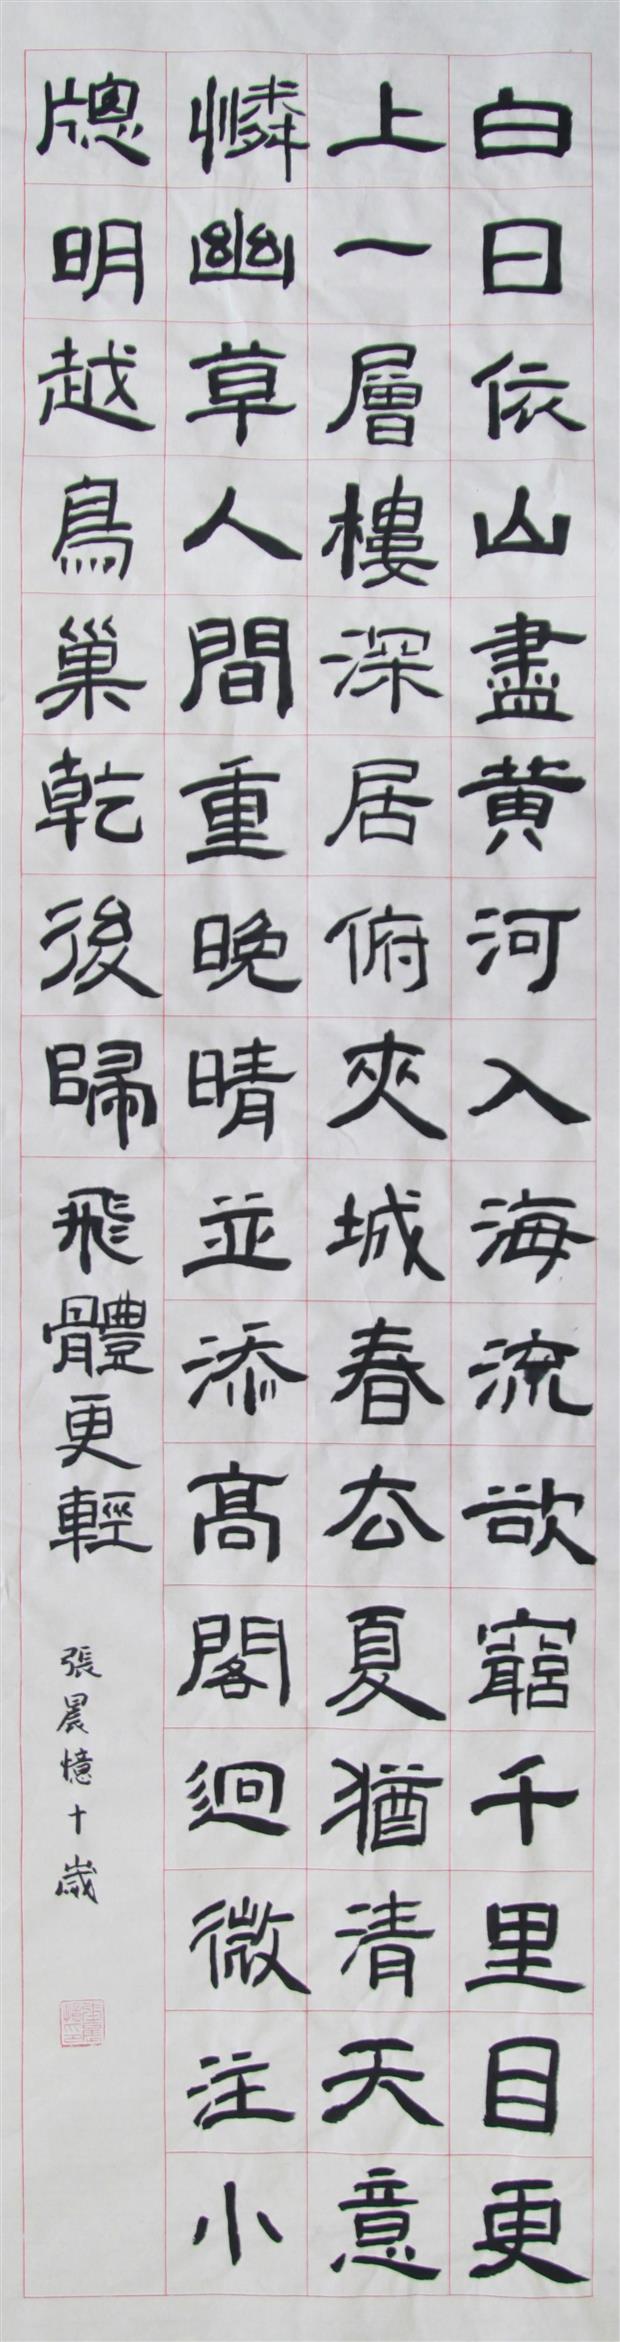 白日依山盡黄河入海流欲窮千里目更
上一層樓深居俯夾城春去夏猶清天意
憐幽草人間重晚晴並添高閣迥微注小
牕明越鳥巢乾後歸飛體更輕
張晨憶十歲